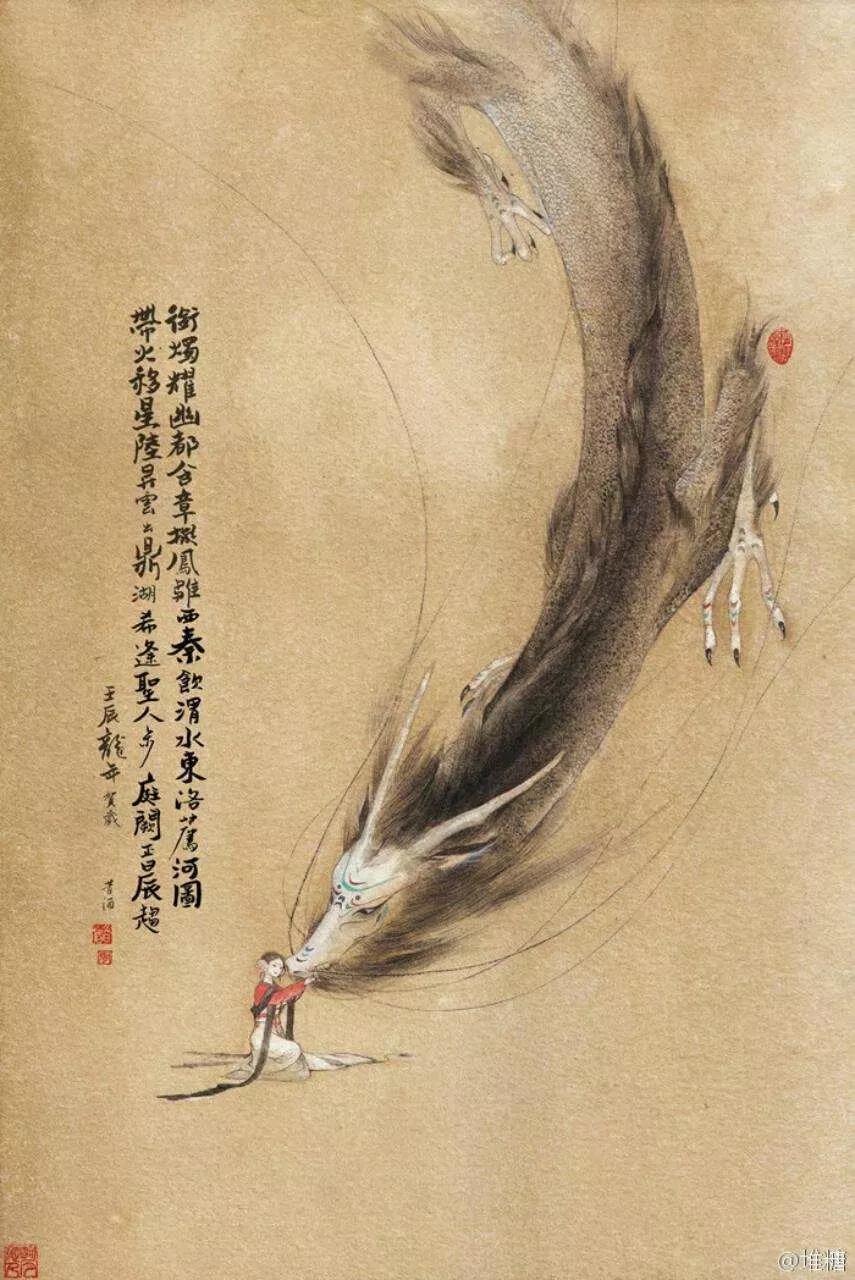 銜燭耀幽都含章擬鳳雛西秦飲渭水東洛薦河圖
帶火移星陸昇雲出鼎湖希逢聖人步庭闕正晨趨
壬辰龍年賀歲
@堆糖